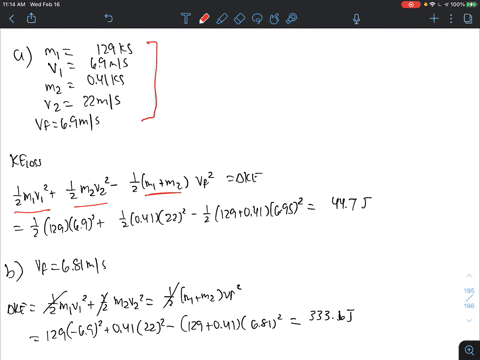 11:14 AM Wed Feb 16
100%
a) m₁ = 129 kg
v₁ = 6.9 m/s
m₂ = 0.41 kg
v₂ = 22 m/s
Vf = 6.9 m/s
KE loss
½m₁v₁² + ½m₂v₂² - ½(m₁+m₂) Vf² = ΔKE
= ½(129)(6.9)² + ½(0.41)(22)² - ½(129+0.41)(6.95)² = 44.7 J
b) Vf = 6.81 m/s
ΔKE = ½m₁v₁² + ½m₂v₂² = ½(m₁+m₂)Vf²
= 129(-6.9)² + 0.41(22)² - (129+0.41)(6.81)² = 333.6J
195
198